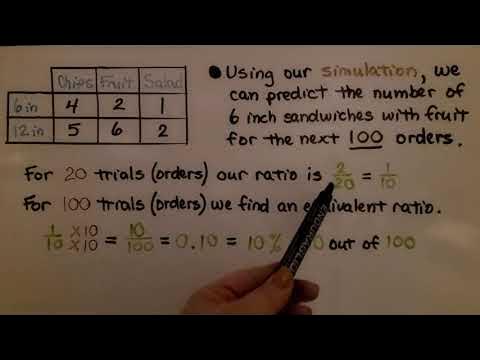 Chips Fruit Salad
6in 4 2 1
12in 5 6 2
• Using our simulation, we
can predict the number of
6 inch sandwiches with fruit
for the next 100 orders.
For 20 trials (orders) our ratio is 2/20 = 1/10
For 100 trials (orders) we find an equivalent ratio.
1/10 x10 x10 = 10/100 = 0.10 = 10% out of 100